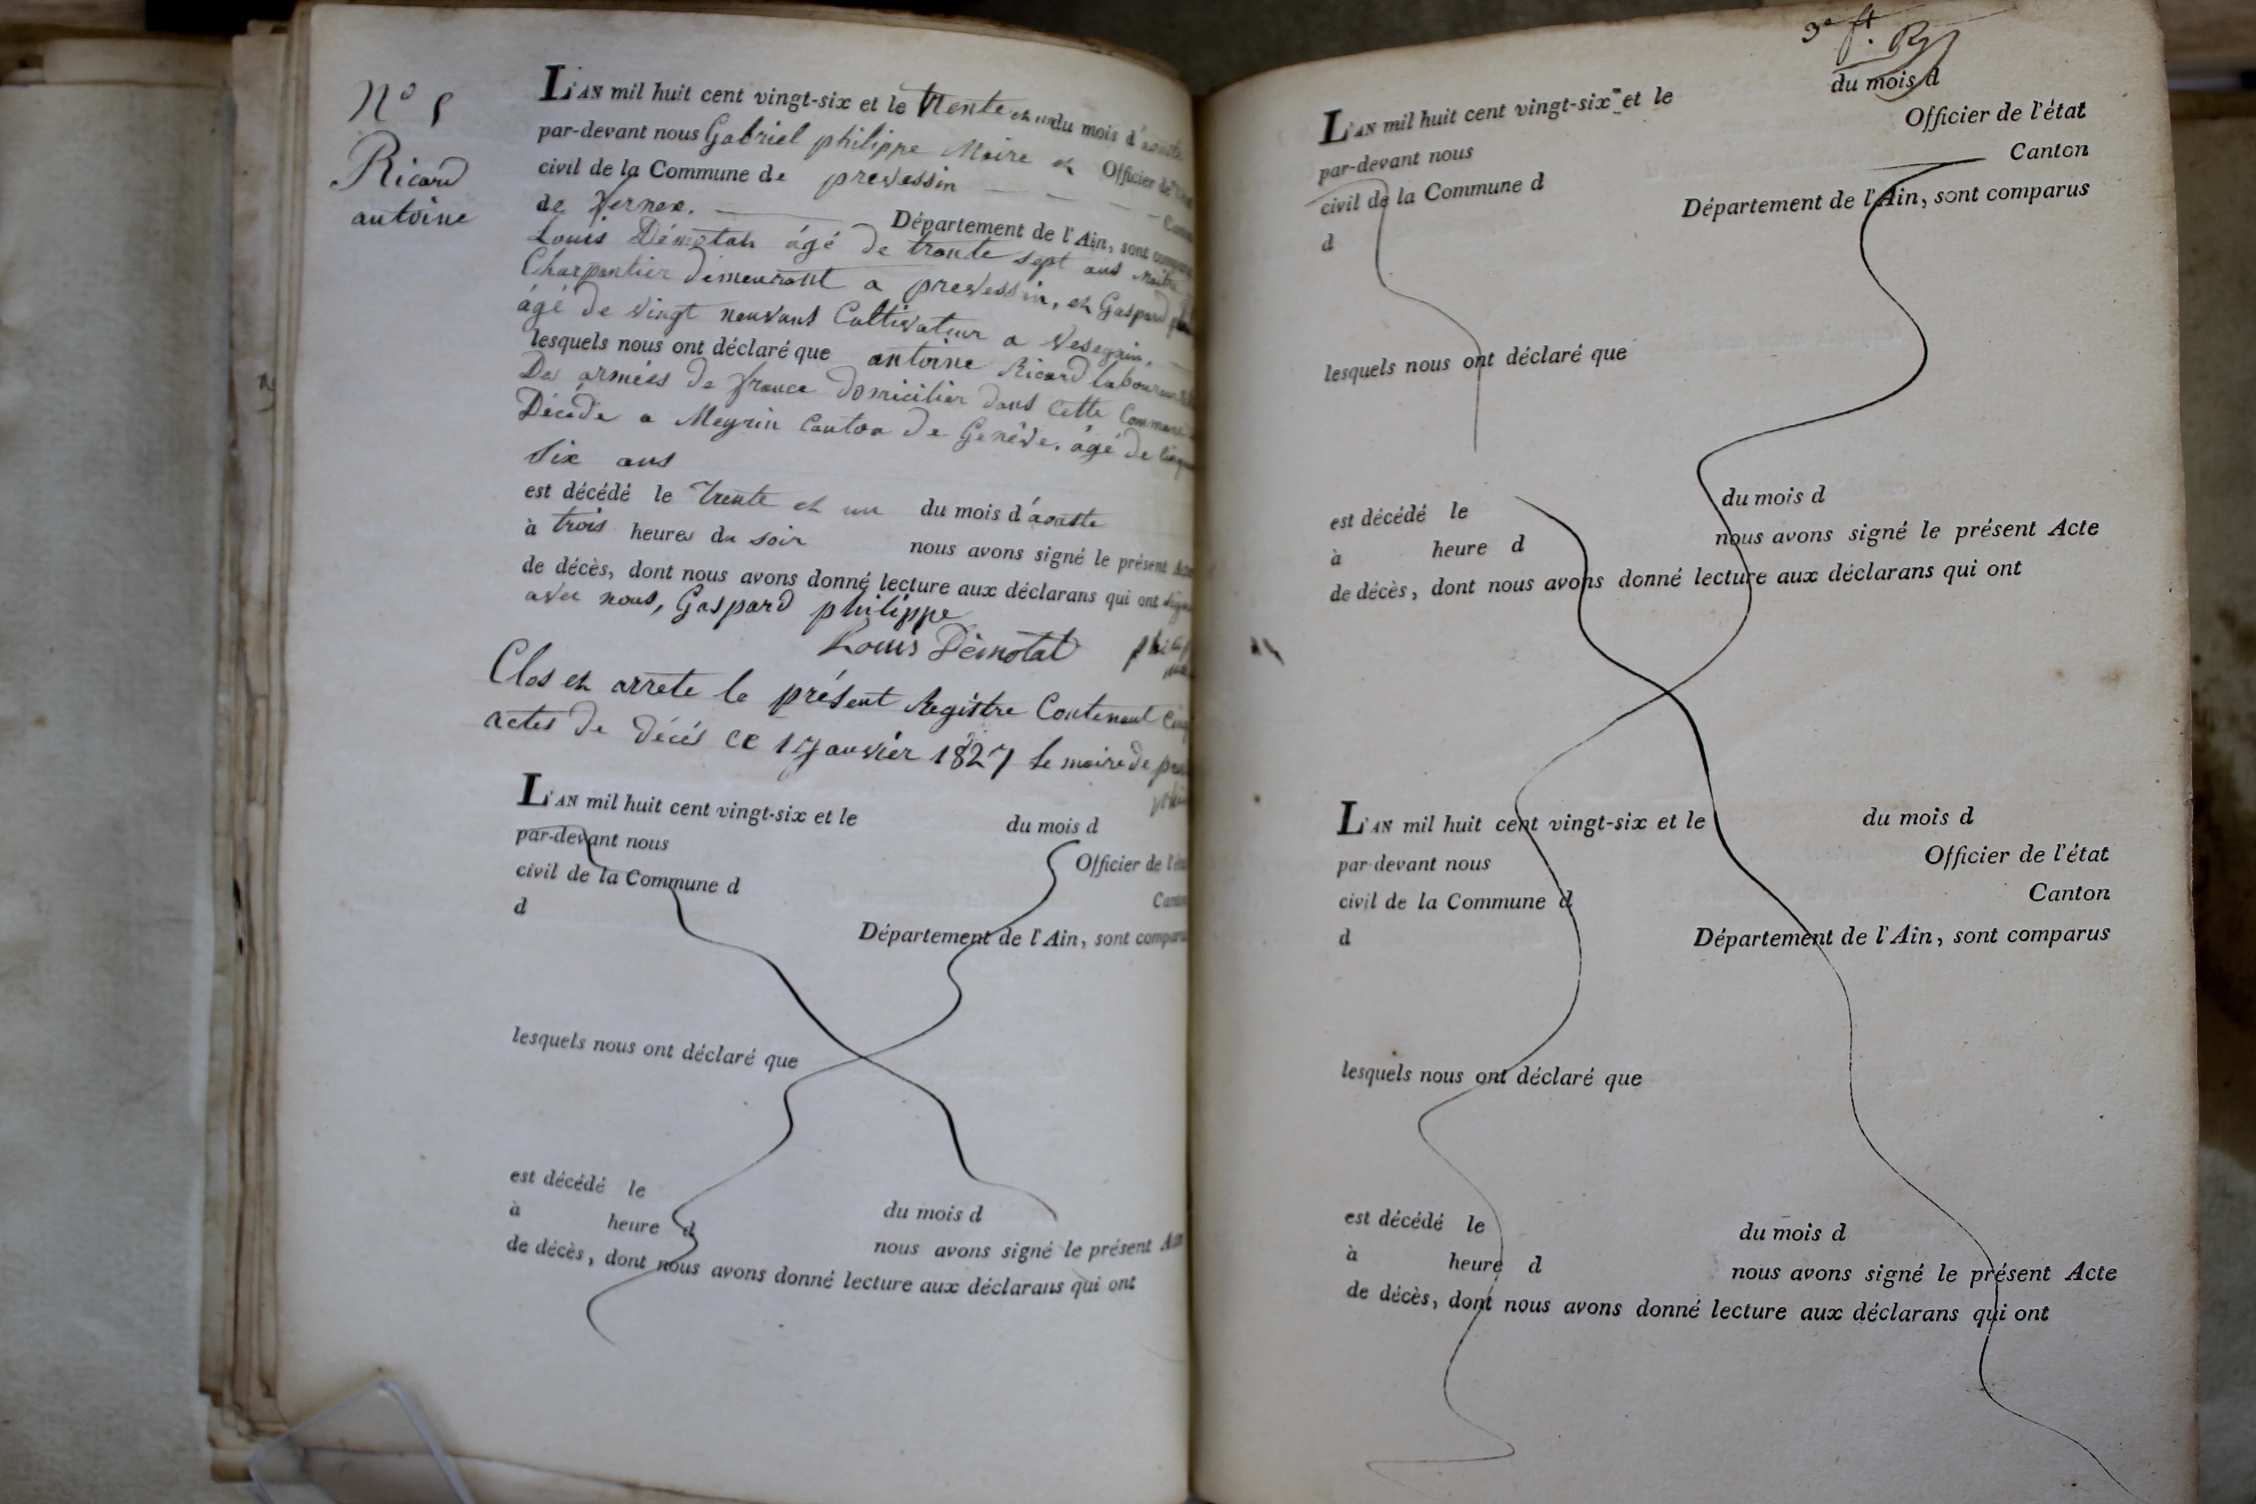 N° 5
Ricard
antoine
L'AN mil huit cent vingt-six et le trente et un du mois d'aouste
par-devant nous Gabriel philippe Maire et Officier de l'état
civil de la Commune de prevessin Canton
de fernex. Département de l'Ain, sont comparus
Louis Démotah âgé de trante sept ans Maitre
Charpantier demeurant a prevessin, et Gaspard
âgé de vingt neuvans Cultivateur a Vesegnin.
lesquels nous ont déclaré que antoine Ricard laboureur
Des armées de france domicilier dans cette Commune
Décédé a Meyrin Canton de Genêve, âgé de
six ans
est décédé le trente et un du mois d'aouste
à trois heures du soir nous avons signé le présent Acte
de décès, dont nous avons donné lecture aux déclarans qui ont signé
avec nous, Gaspard philippe
Louis Démotat
Clos et arrete le présent Registre Contenant Cinq
actes de décés ce 1 Janvier 1827 Le maire de
L'AN mil huit cent vingt-six et le du mois d
par-devant nous Officier de l'état
civil de la Commune d Canton
d Département de l'Ain, sont comparus
lesquels nous ont déclaré que
est décédé le du mois d
à heure d nous avons signé le présent Acte
de décès, dont nous avons donné lecture aux déclarans qui ont
3e ft.
L'AN mil huit cent vingt-six et le du mois d
par-devant nous Officier de l'état
civil de la Commune d Canton
d Département de l'Ain, sont comparus
lesquels nous ont déclaré que
est décédé le du mois d
à heure d nous avons signé le présent Acte
de décès, dont nous avons donné lecture aux déclarans qui ont
L'AN mil huit cent vingt-six et le du mois d
par-devant nous Officier de l'état
civil de la Commune d Canton
d Département de l'Ain, sont comparus
lesquels nous ont déclaré que
est décédé le du mois d
à heure d nous avons signé le présent Acte
de décès, dont nous avons donné lecture aux déclarans qui ont